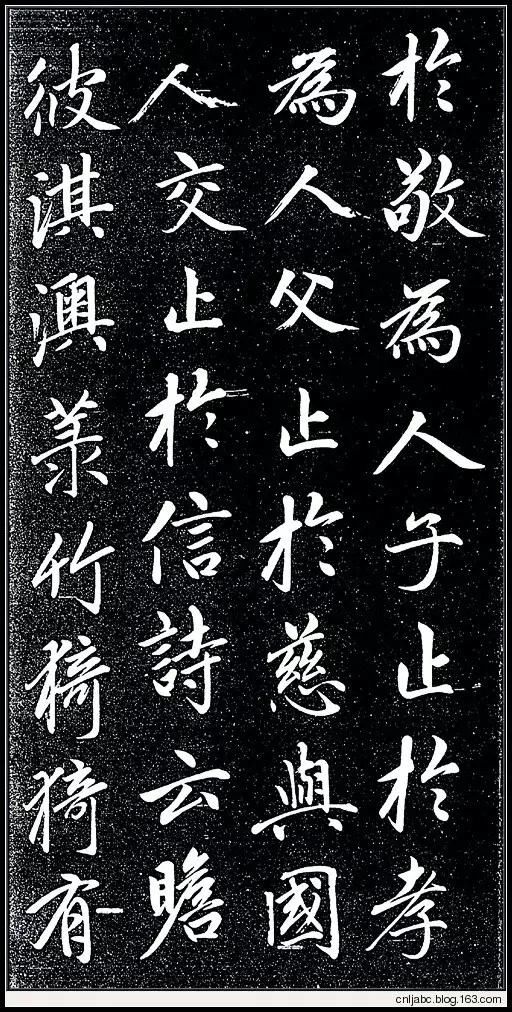 於敬為人子止於孝
為人父止於慈與國
人交止於信詩云瞻
彼淇澳菉竹猗猗有
cnljabc.blog.163.com